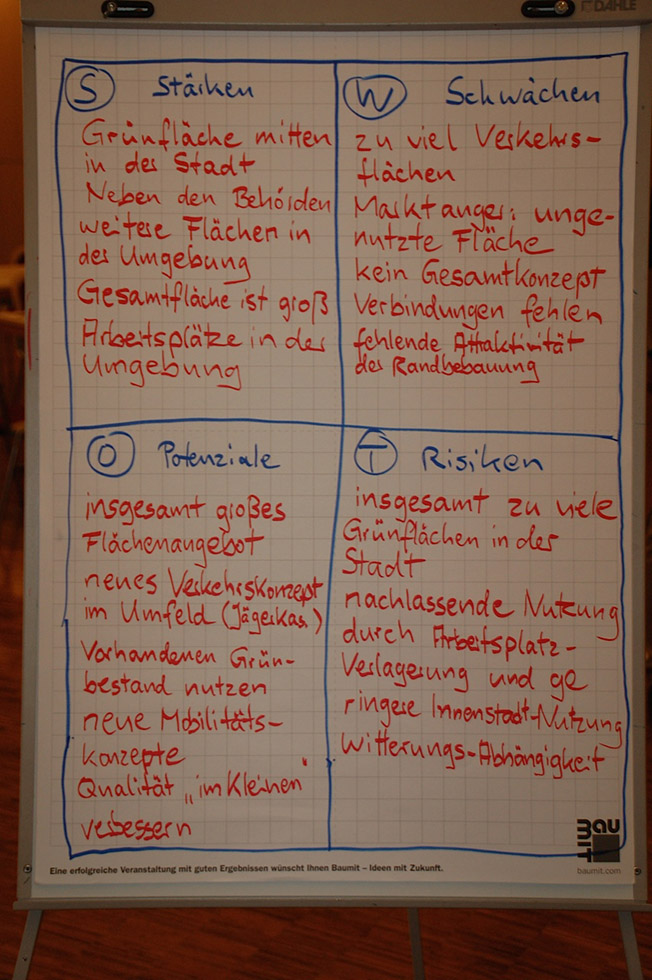 DAHLE
S Stärken
Grünfläche mitten
in der Stadt
Neben den Behörden
weitere Flächen in
der Umgebung
Gesamtfläche ist groß
Arbeitsplätze in der
Umgebung
W Schwächen
zu viel Verkehrs-
flächen
Marktanger: unge-
nutzte Fläche
kein Gesamtkonzept
Verbindungen fehlen
fehlende Attraktivität
der Randbebauung
O Potenziale
insgesamt großes
Flächenangebot
neues Verkehrskonzept
im Umfeld (Jägerkas.)
Vorhandenen Grün-
bestand nutzen
neue Mobilitäts-
konzepte
Qualität „im Kleinen"
verbessern
T Risiken
insgesamt zu viele
Grünflächen in der
Stadt
nachlassende Nutzung
durch Arbeitsplatz-
Verlagerung und ge
ringere Innenstadt-Nutzung
Witterungs-Abhängigkeit
bau
mit
baumit.com
Eine erfolgreiche Veranstaltung mit guten Ergebnissen wünscht Ihnen Baumit – Ideen mit Zukunft.